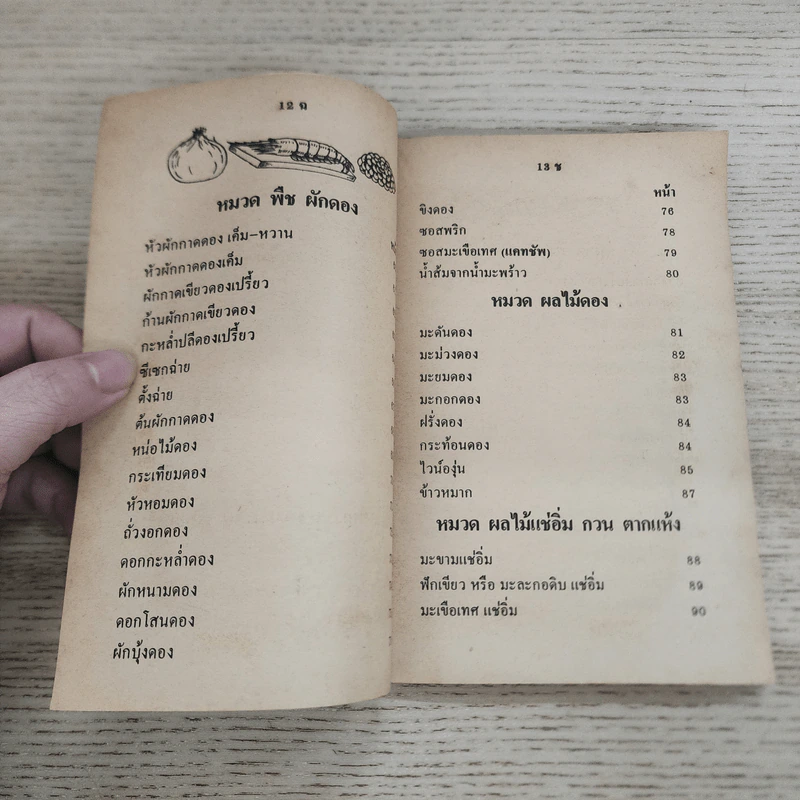 12 ฉ
หมวด พืช ผักดอง
หัวผักกาดดอง เค็ม-หวาน
หัวผักกาดดองเค็ม
ผักกาดเขียวดองเปรี้ยว
ก้านผักกาดเขียวดอง
กะหล่ำปลีดองเปรี้ยว
ซีเซกฉ่าย
ตั้งฉ่าย
ต้นผักกาดดอง
หน่อไม้ดอง
กระเทียมดอง
หัวหอมดอง
ถั่วงอกดอง
ดอกกะหล่ำดอง
ผักหนามดอง
ดอกโสนดอง
ผักบุ้งดอง
13 ช
หน้า
ขิงดอง 76
ซอสพริก 78
ซอสมะเขือเทศ (แคทชัพ) 79
น้ำส้มจากน้ำมะพร้าว 80
หมวด ผลไม้ดอง
มะดันดอง 81
มะม่วงดอง 82
มะยมดอง 83
มะกอกดอง 83
ฝรั่งดอง 84
กระท้อนดอง 84
ไวน์องุ่น 85
ข้าวหมาก 87
หมวด ผลไม้แช่อิ่ม กวน ตากแห้ง
มะขามแช่อิ่ม 88
ฟักเขียว หรือ มะละกอดิบ แช่อิ่ม 89
มะเขือเทศ แช่อิ่ม 90